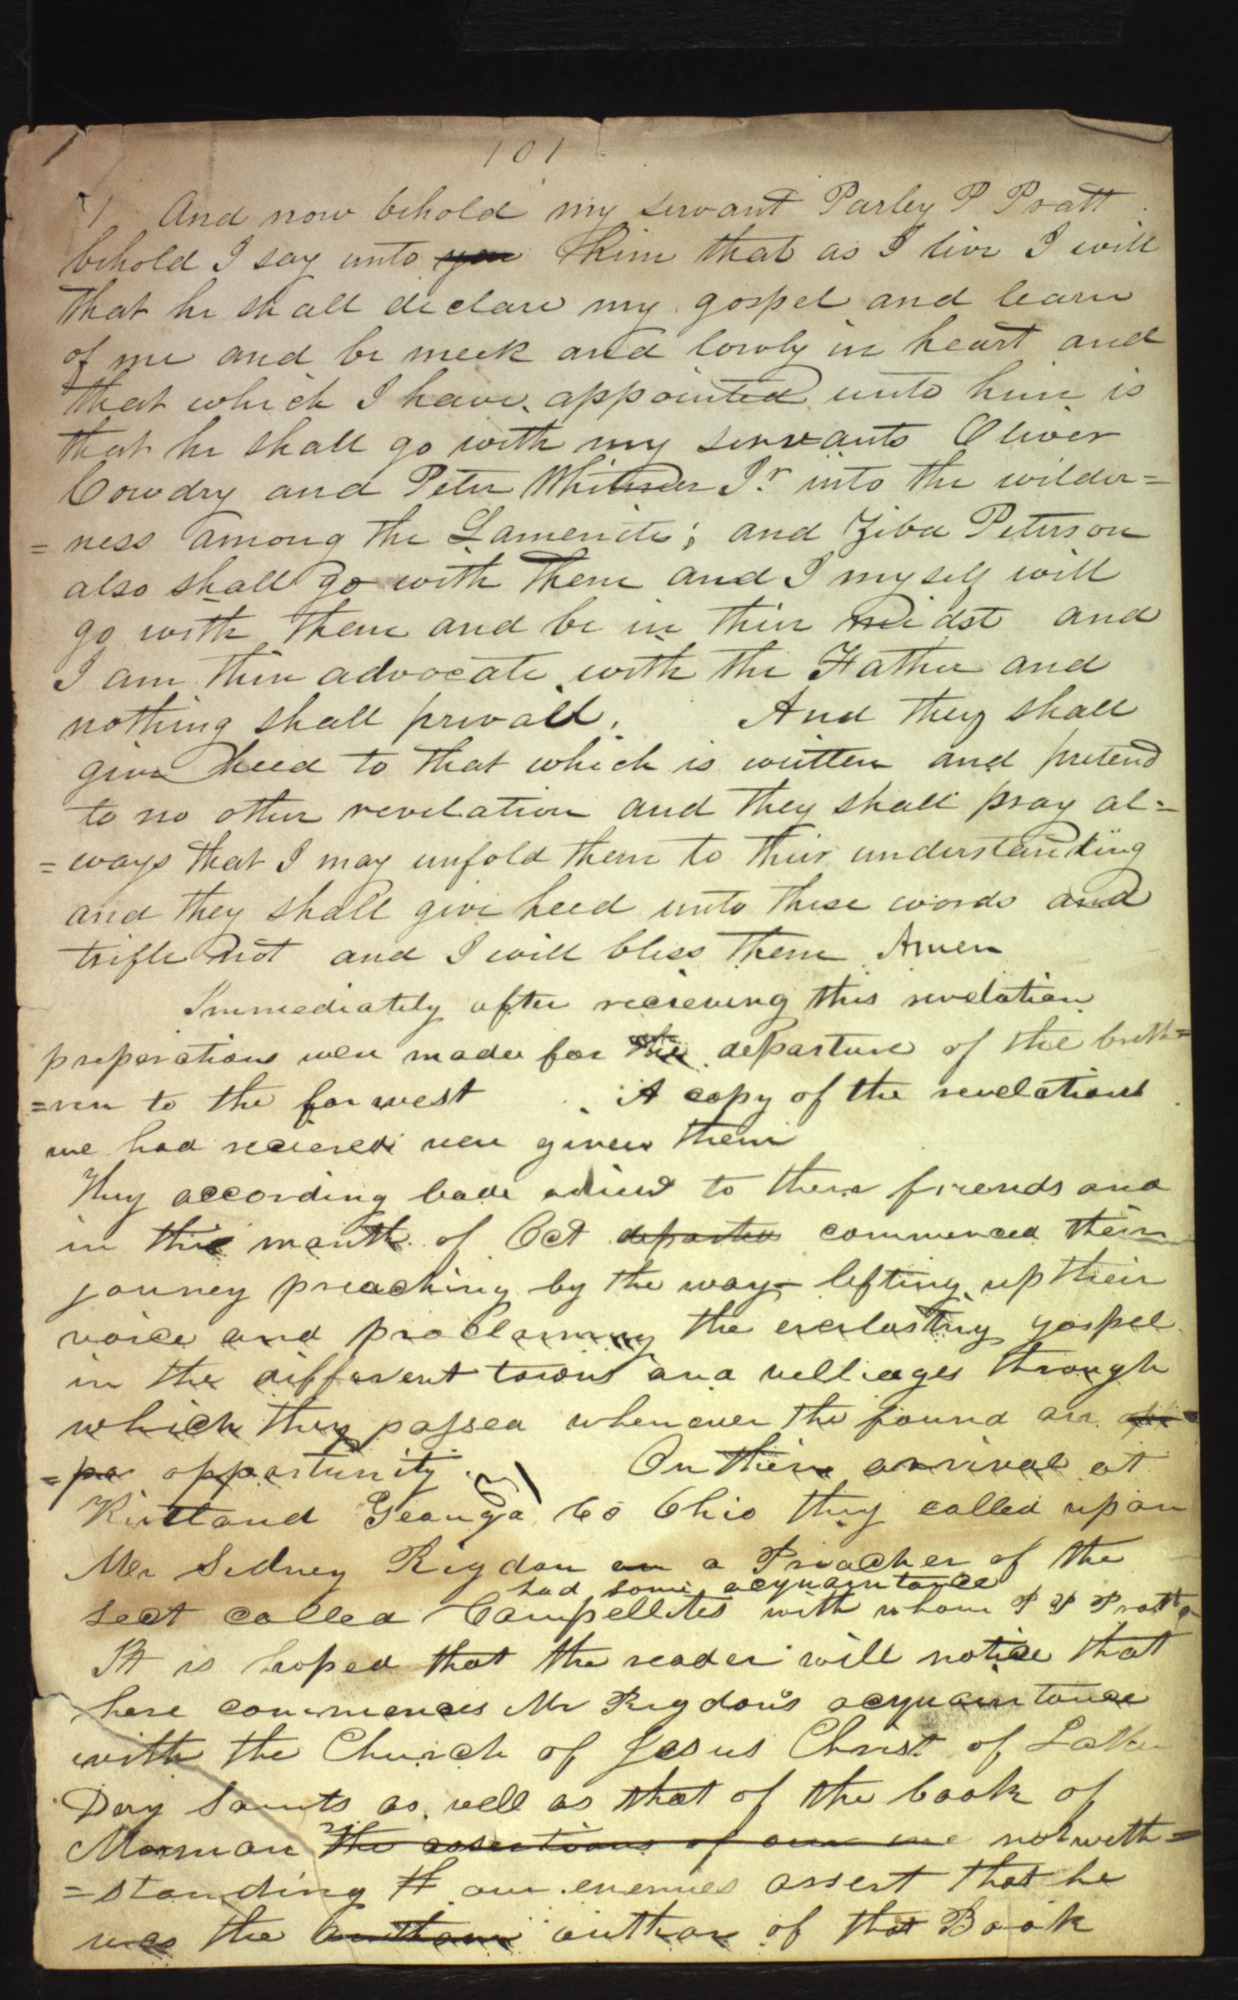 101
1 And now behold my servant Parley P Pratt
behold I say unto you him that as I live I will
that he shall declare my gospel and learn
of me and be meek and lowly in heart and
that which I have appointed unto him is
that he shall go with my servants Oliver
Cowdry and Peter Whitmer Jr into the wilder=
=ness among the Lamenite; and Ziba Peterson
also shall go with them and I myself will
go with them and be in their midst and
I am their advocate with the Father and
nothing shall prevail. And they shall
give heed to that which is written and pretend
to no other revelation and they shall pray al=
=ways that I may unfold them to their understanding
and they shall give heed unto these words and
trifle not and I will bless them Amen
Immediately after recieving this revelation
preperations were made for the departure of the breth=
=ren to the far west A copy of the revelations
we had recieved were given them
They according bade adieu to there friends and
in the month of Oct departed commenced their
journey preaching by the way lifting up their
voice and proclaiming the everlasting gospel
in the different towns and velliages through
which they passed whenever the found an op
=po opportunity. On their arrival at
Kirtland Geauga Co Ohio they called upon
Mr Sidney Rigdon an a Preacher of the
had some acquaintance
sect called Campellites with whom P P Pratt
It is hoped that the reader will notice that
here commences Mr Rigdon's acquaintance
with the Church of Jesus Christ of Latter
Day Saints as well as that of the book of
Mormon the assertions of our ene notwith=
=standing th our enemies assert that he
was the author of that Book